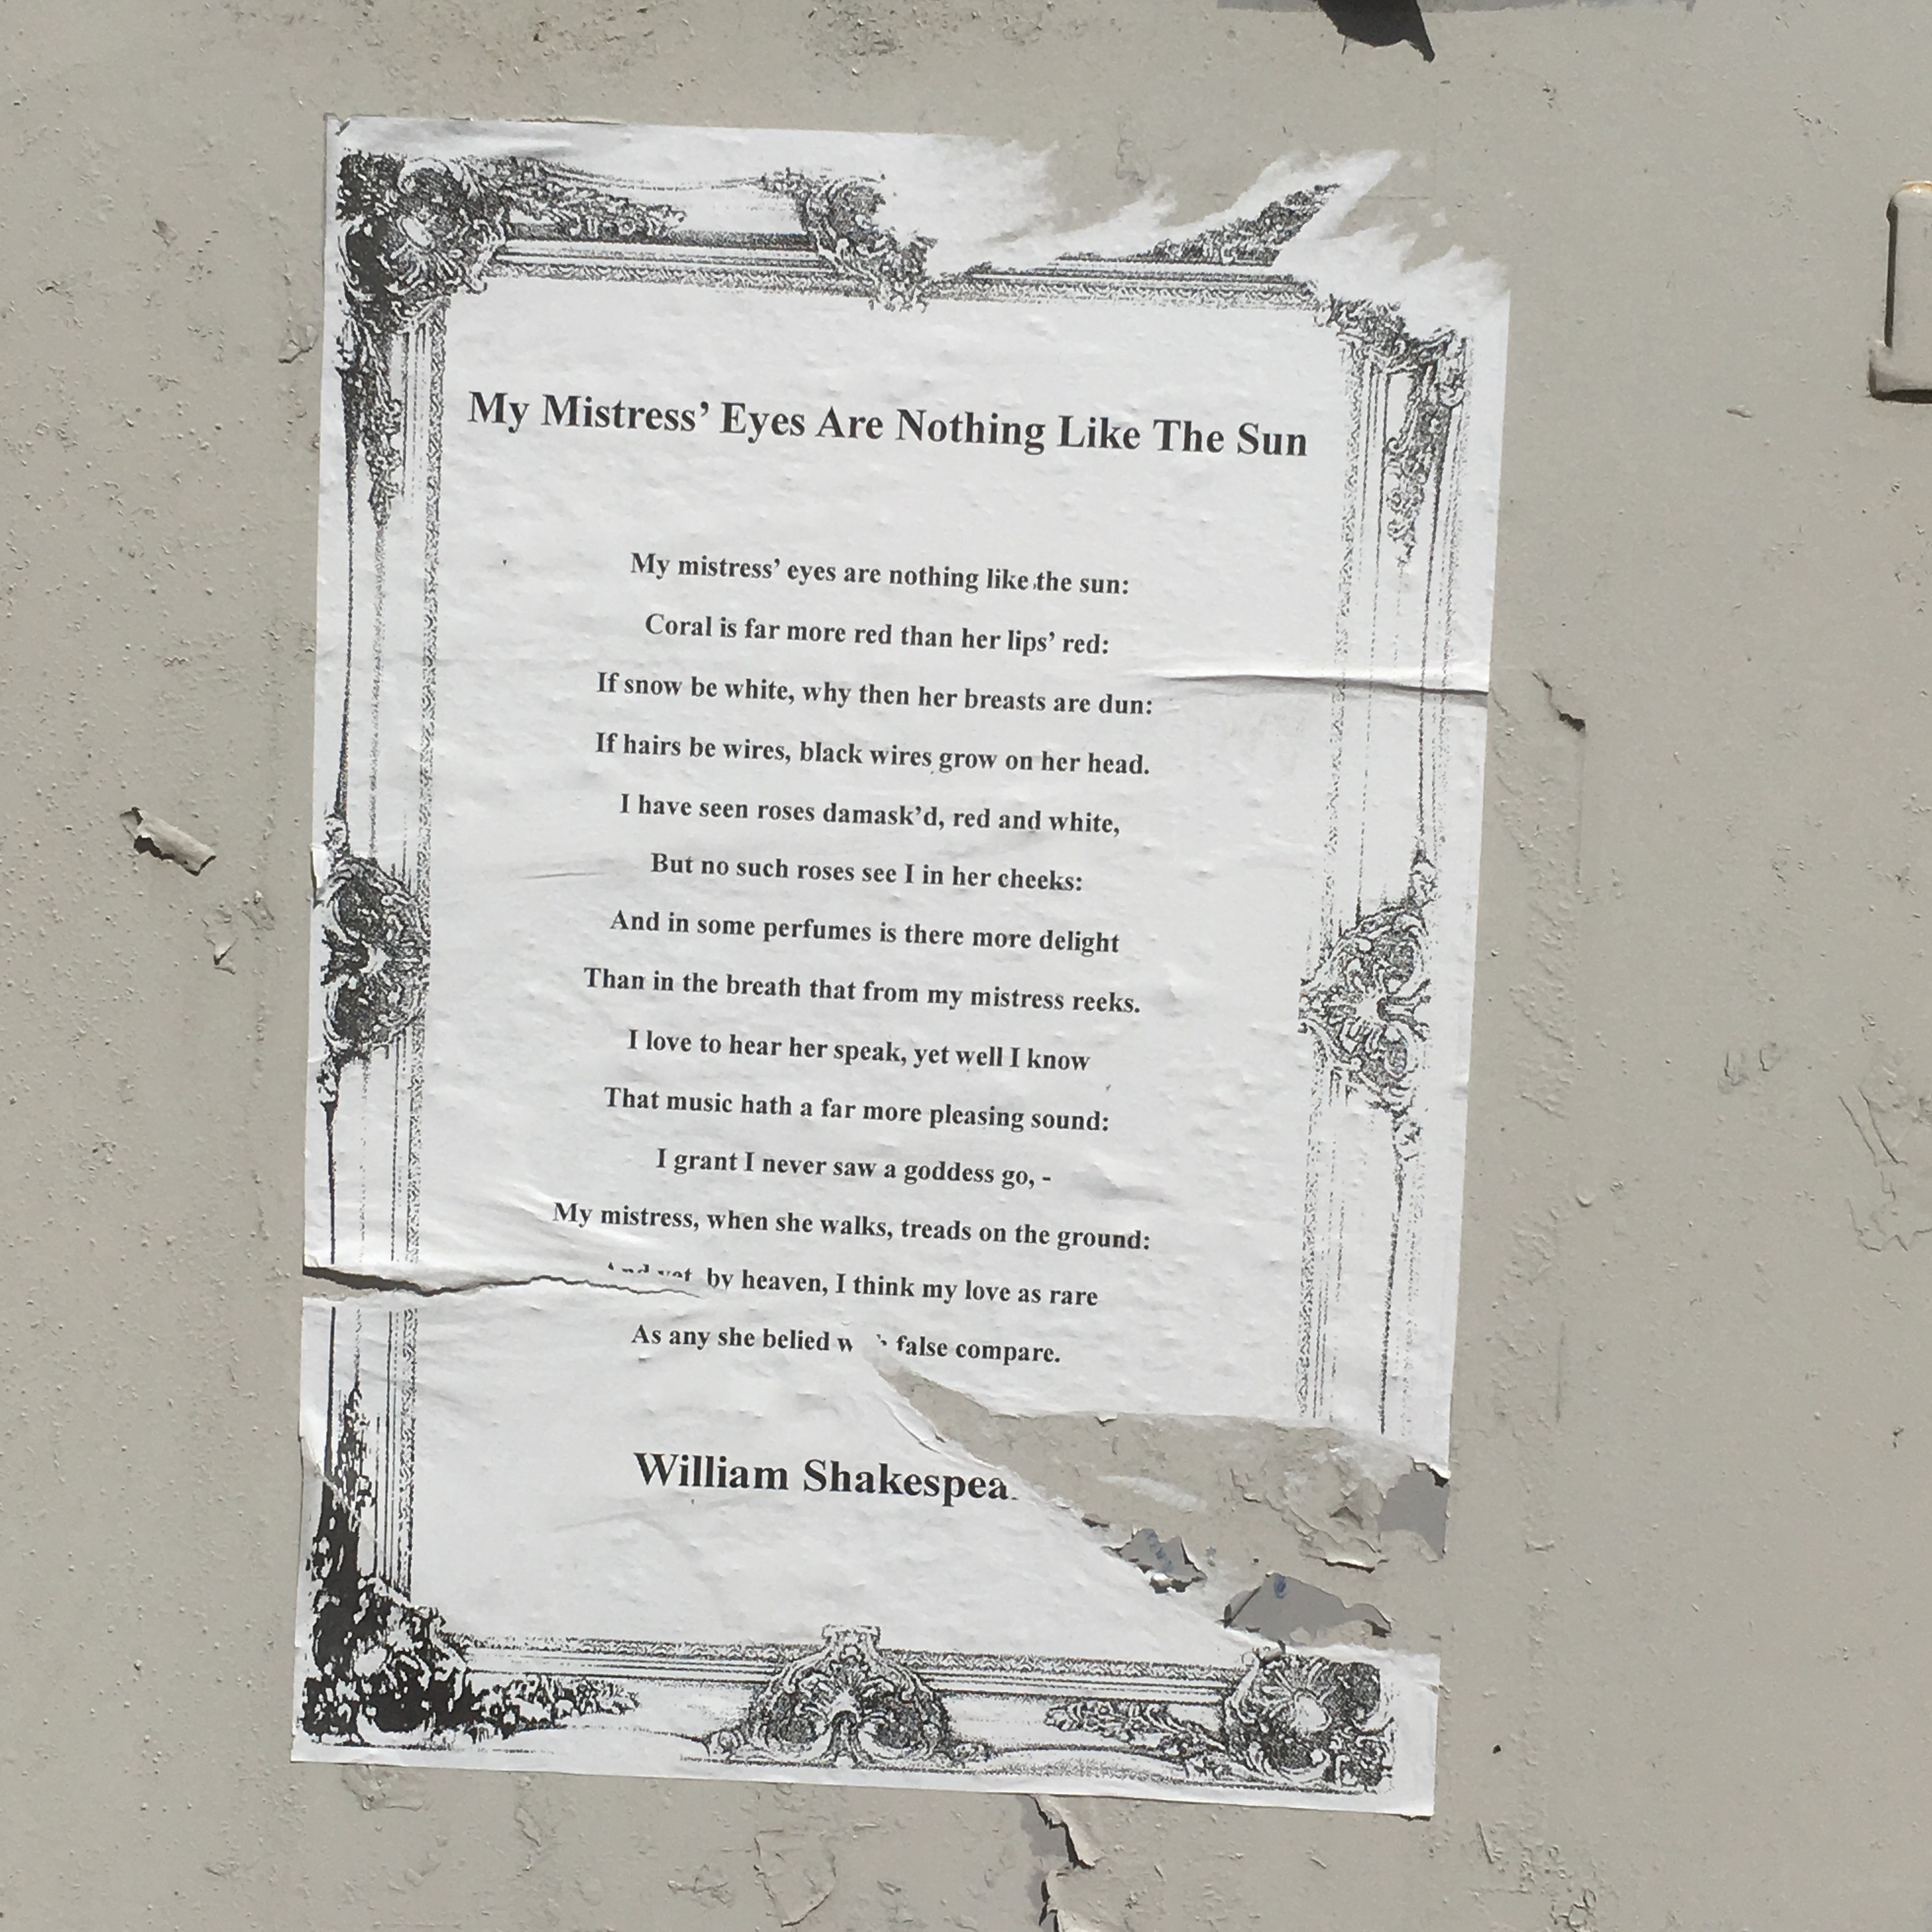 My Mistress’ Eyes Are Nothing Like The Sun
My mistress’ eyes are nothing like the sun:
Coral is far more red than her lips’ red:
If snow be white, why then her breasts are dun:
If hairs be wires, black wires grow on her head.
I have seen roses damask’d, red and white,
But no such roses see I in her cheeks:
And in some perfumes is there more delight
Than in the breath that from my mistress reeks.
I love to hear her speak, yet well I know
That music hath a far more pleasing sound:
I grant I never saw a goddess go, -
My mistress, when she walks, treads on the ground:
And yet by heaven, I think my love as rare
As any she belied false compare.
William Shakespea